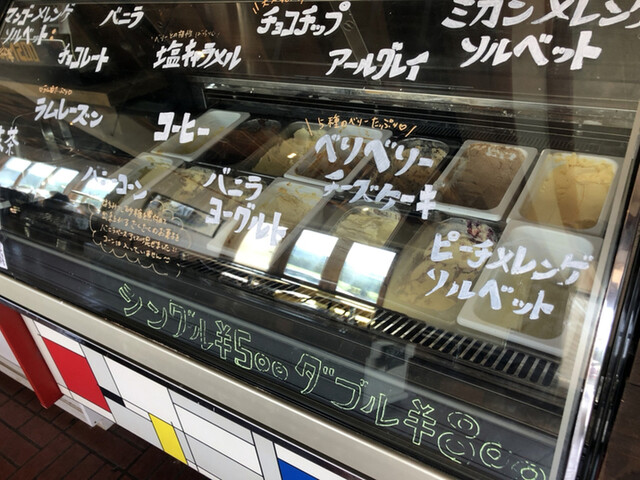 マンゴーメレンゲ
ソルベット
バニラ
チョコチップ
ミカンメレンゲ
ソルベット
チョコレート
塩キャラメル
アールグレイ
ラムレーズン
コーヒー
5種のベリーたっぷり♡
ベリベリー
チーズケーキ
抹茶
バニラ
ヨーグルト
ピーチメレンゲ
ソルベット
シングル¥500 ダブル¥800